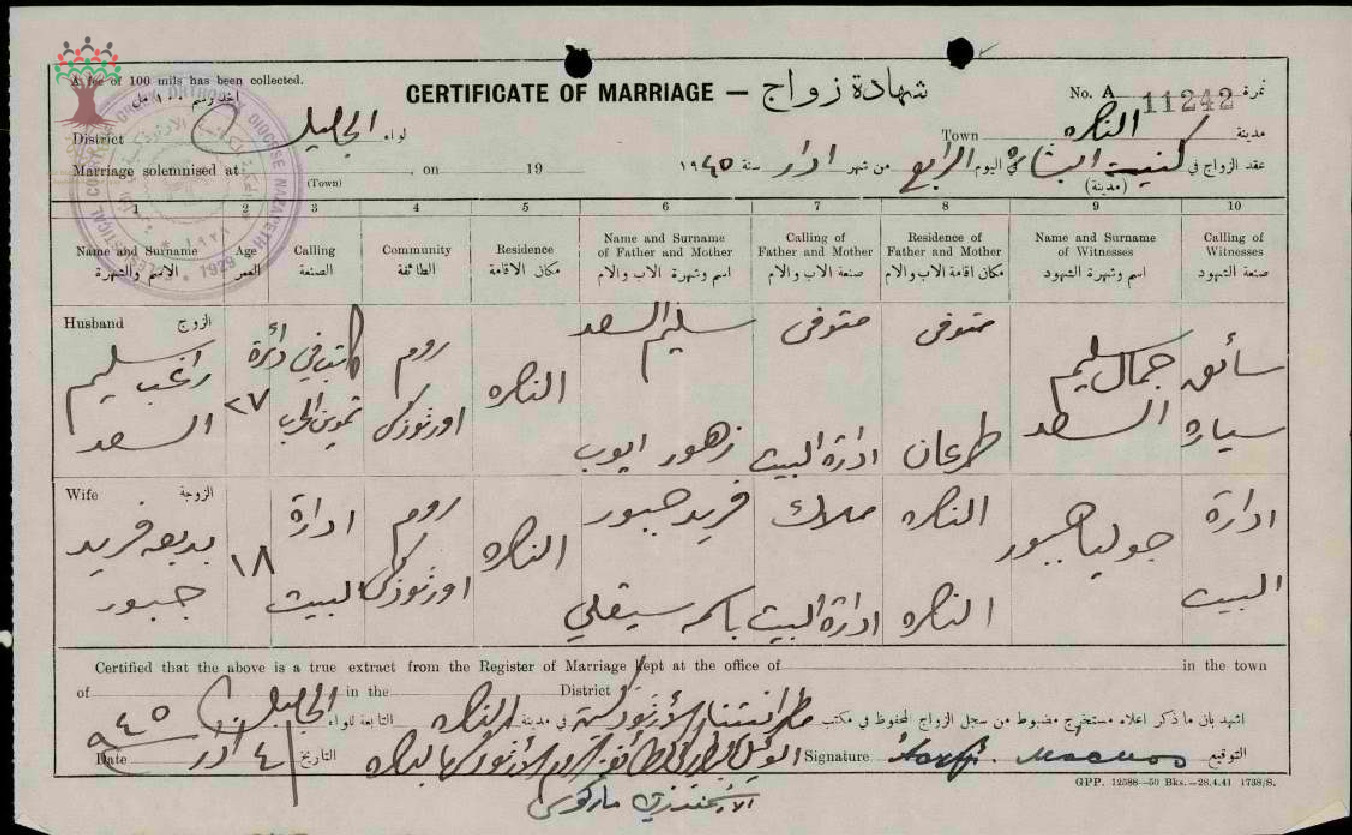 A fee of 100 mils has been collected.
CERTIFICATE OF MARRIAGE — شهادة زواج
No. A 11242 نمرة
District الجليل لواء
Town الناصره مدينة
Marriage solemnised at , on 19
(Town)
عقد الزواج في كنيسة البشارة في اليوم الرابع من شهر ادار سنة ١٩٤٥
(مدينة)
1 2 3 4 5 6 7 8 9 10
Name and Surname Age Calling Community Residence Name and Surname of Father and Mother Calling of Father and Mother Residence of Father and Mother Name and Surname of Witnesses Calling of Witnesses
الاسم والشهرة العمر الصنعة الطائفة مكان الاقامة اسم وشهرة الاب والام صنعة الاب والام مكان اقامة الاب والام اسم وشهرة الشهود صنعة الشهود
Husband الزوج
راغب سليم السعد
٢٧
كاتب في دائرة تموين الحرب
روم اورثوذكس
الناصره
سليم السعد متوفى متوفى
زهور ايوب ادارة البيت طرعان
جمال سليم السعد
سائق سياره
Wife الزوجة
بديعه فريد جبور
١٨
ادارة البيت
روم اورثوذكس
الناصره
فريد جبور ملاك الناصره
باسمه سيقلي ادارة البيت الناصره
جوليا جبور
ادارة البيت
Certified that the above is a true extract from the Register of Marriage kept at the office of in the town
of in the District
اشهد بان ما ذكر اعلاه مستخرج مضبوط من سجل الزواج المحفوظ في مكتب الأرثوذكسية في مدينة الناصره التابعة للواء الجليل
Date ٤ ادار ٩٤٥ التاريخ
Signature التوقيع
الارشمندريت ماركوس
GPP. 12588—50 Bks.—28.4.41 1738/S.